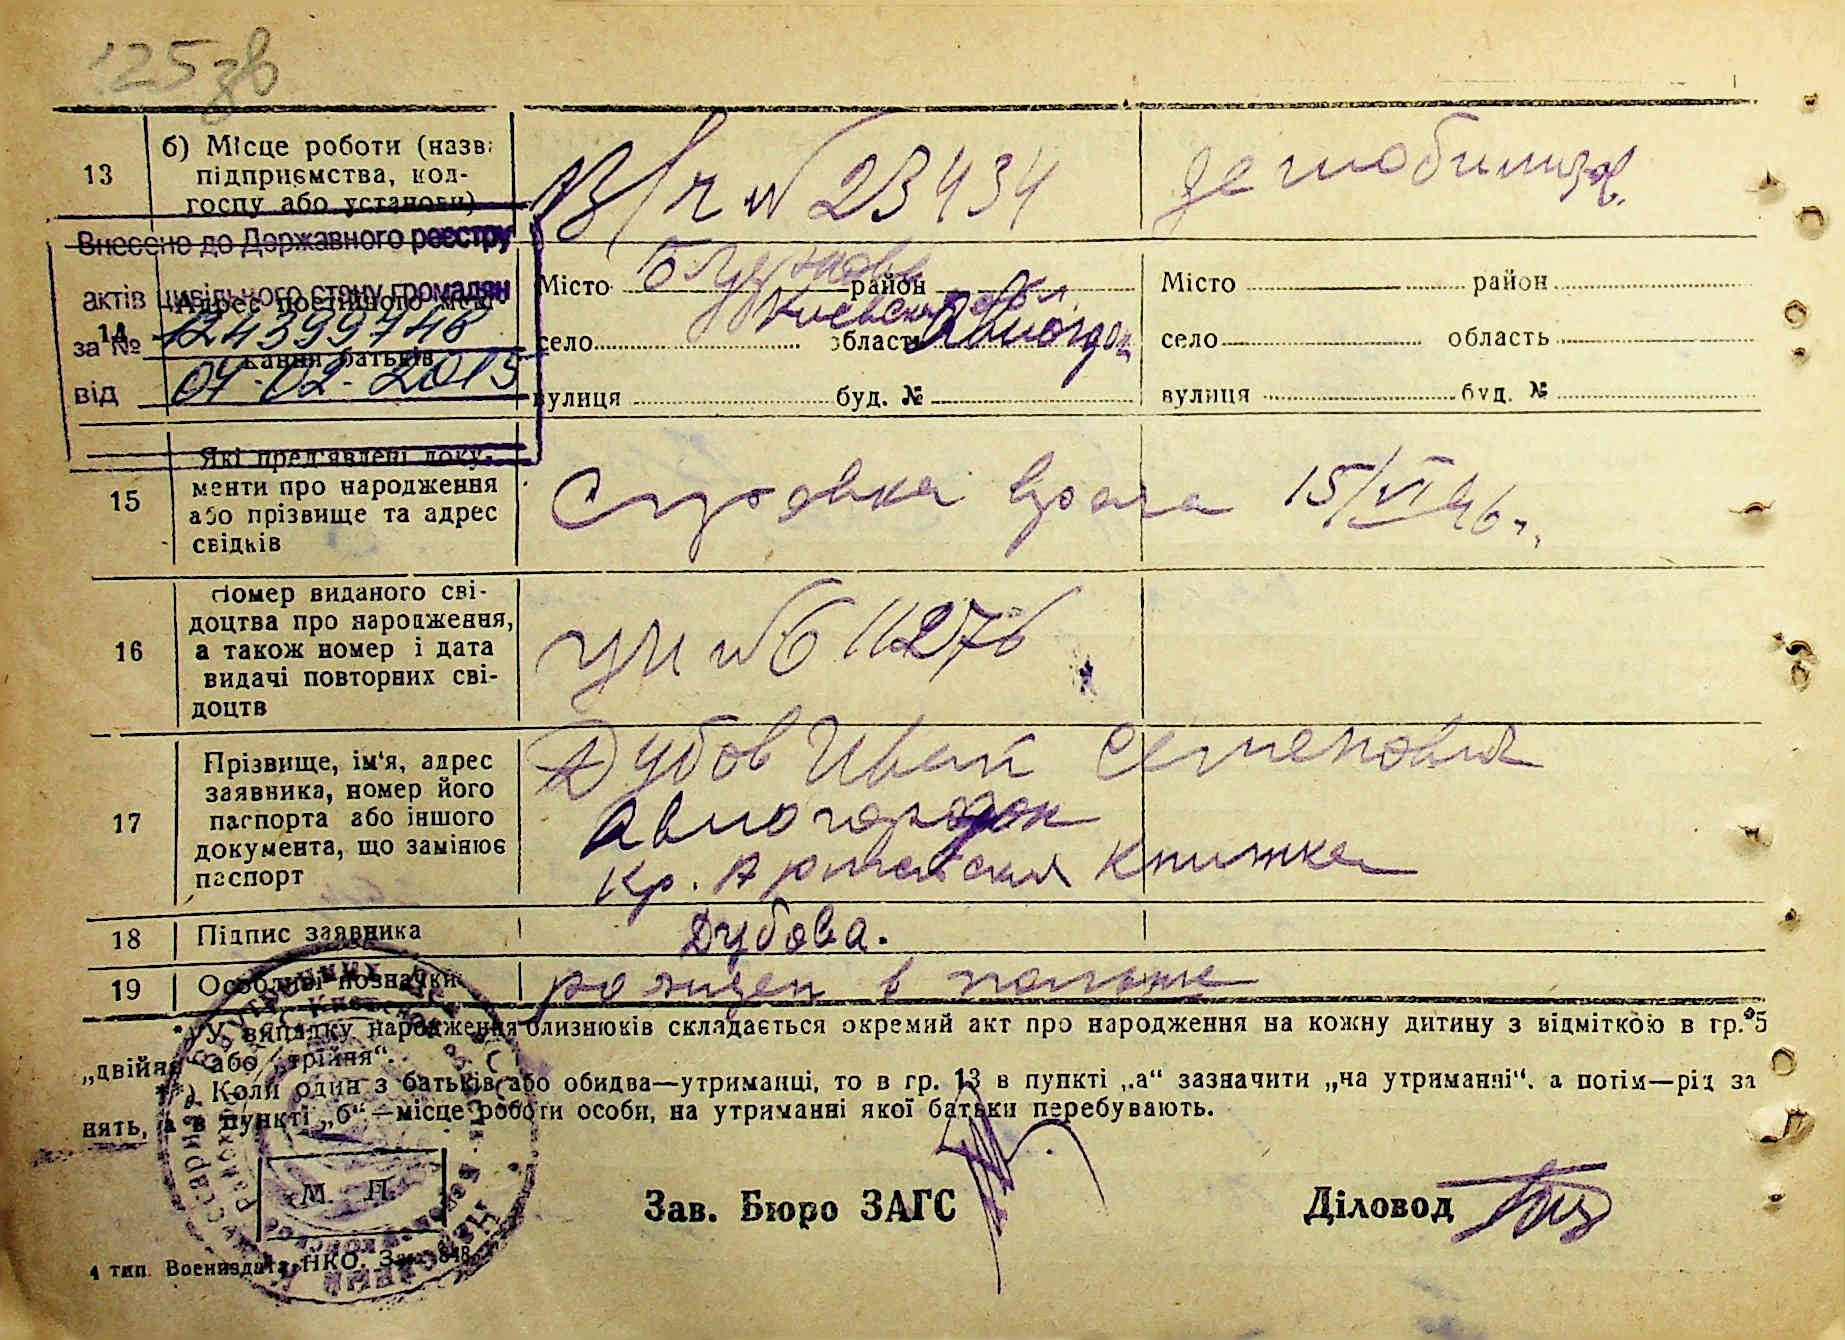 125 зв
13
б) Місце роботи (назва
підприємства, кол-
госпу або установи)
В/ч № 23434
демобилиз.
Внесено до Державного реєстру
актів цивільного стану громадян
за № 124399748
від 04.02.2015
14
Адрес постійного
кання батьків
Місто район
Киевск. обл.
село область Авиогор
вулиця буд. №
Місто район
село область
вулиця буд. №
15
Які пред'явлені доку-
менти про народження
або прізвище та адрес
свідків
Справка врача 15/VI 46 г.
16
Номер виданого сві-
доцтва про народження,
а також номер і дата
видачі повторних сві-
доцтв
№ 611276
17
Прізвище, ім'я, адрес
заявника, номер його
паспорта або іншого
документа, що замінює
паспорт
Дубов Иван Семенович
Авиогородок
Кр. Армейская книжка
18
Підпис заявника
Дубова.
19
Особливі позначки
рожден в польше
*) У випадку народження близнюків складається окремий акт про народження на кожну дитину з відміткою в гр. 5
„двійня" або „трійня".
**) Коли один з батьків або обидва—утриманці, то в гр. 13 в пункті „а" зазначити „на утриманні". а потім—рід за
нять, а в пункті „б"—місце роботи особи, на утриманні якої батьки перебувають.
М. П.
Зав. Бюро ЗАГС
Діловод
4 тип. Воениздата НКО. Зак. 848